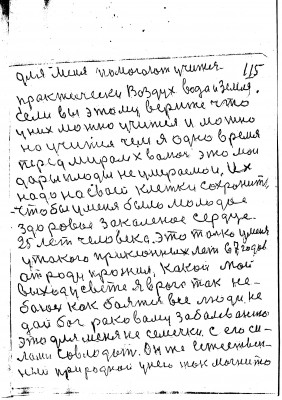 для меня помогают учится 115
практически Воздух вода и земля.
Если вы этому верите что
у них можно учится и можно
но учится чем я одно время
перед миром х вамоч это мои
дары плоды не умираемои, Их
надо на своей клетки сохронить,
чтобы у меня было молодое
здоровое закаленое сердце.
25 лет человека. Это только у меня
у такого преклонных лет 67 годов
от роду прожил, Какой мой
выход у свете Я врого так не
боюсь как боятся все люди не
дай бог раковому заболеванию
это для меня не семечки. с его си-
лами совлодат. Он же естествен-
ный природной у него так могнито